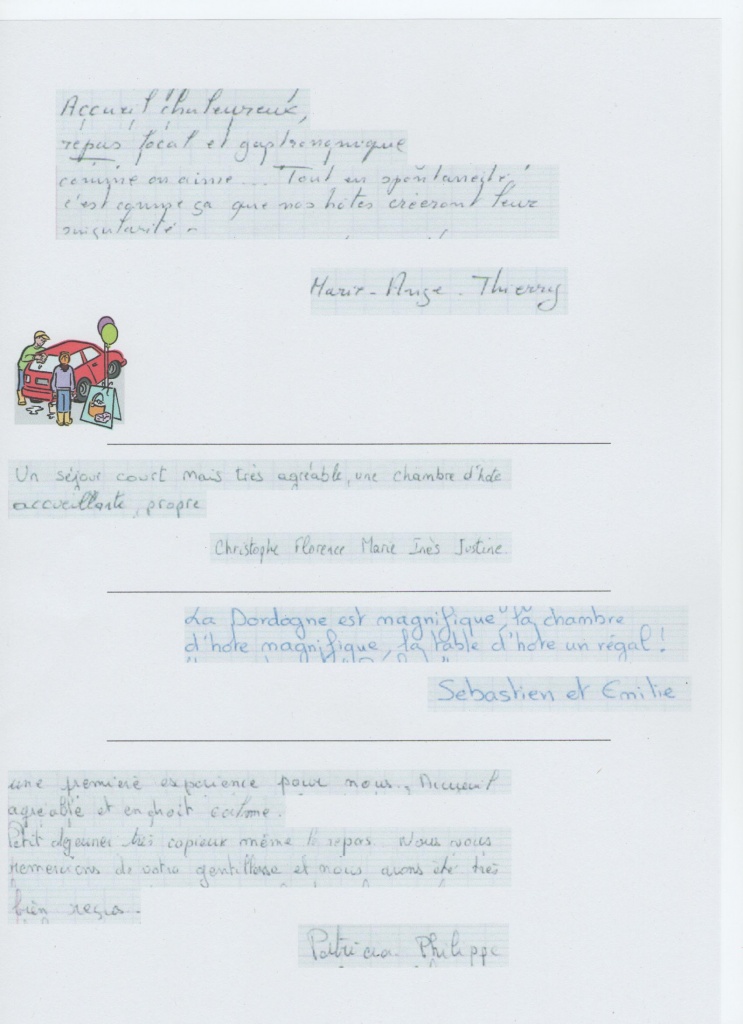 Accueil chaleureux,
repas local et gastronomique
comme on aime... Tout en spontaneité
c'est comme ça que nos hôtes créeront leur
singularité.
Marie-Ange. Thierry
Un séjour court mais très agréable, une chambre d'hôte
accueillante, propre
Christophe Florence Marie Inès Justine.
La Dordogne est magnifique, la chambre
d'hote magnifique, la table d'hote un régal !
Sebastien et Emilie
une première expérience pour nous, Accueil
agréable et endroit calme.
Petit déjeuner très copieux même le repas. Nous vous
remercions de votre gentillesse et nous avons été très
bien reçus.
Patricia Philippe